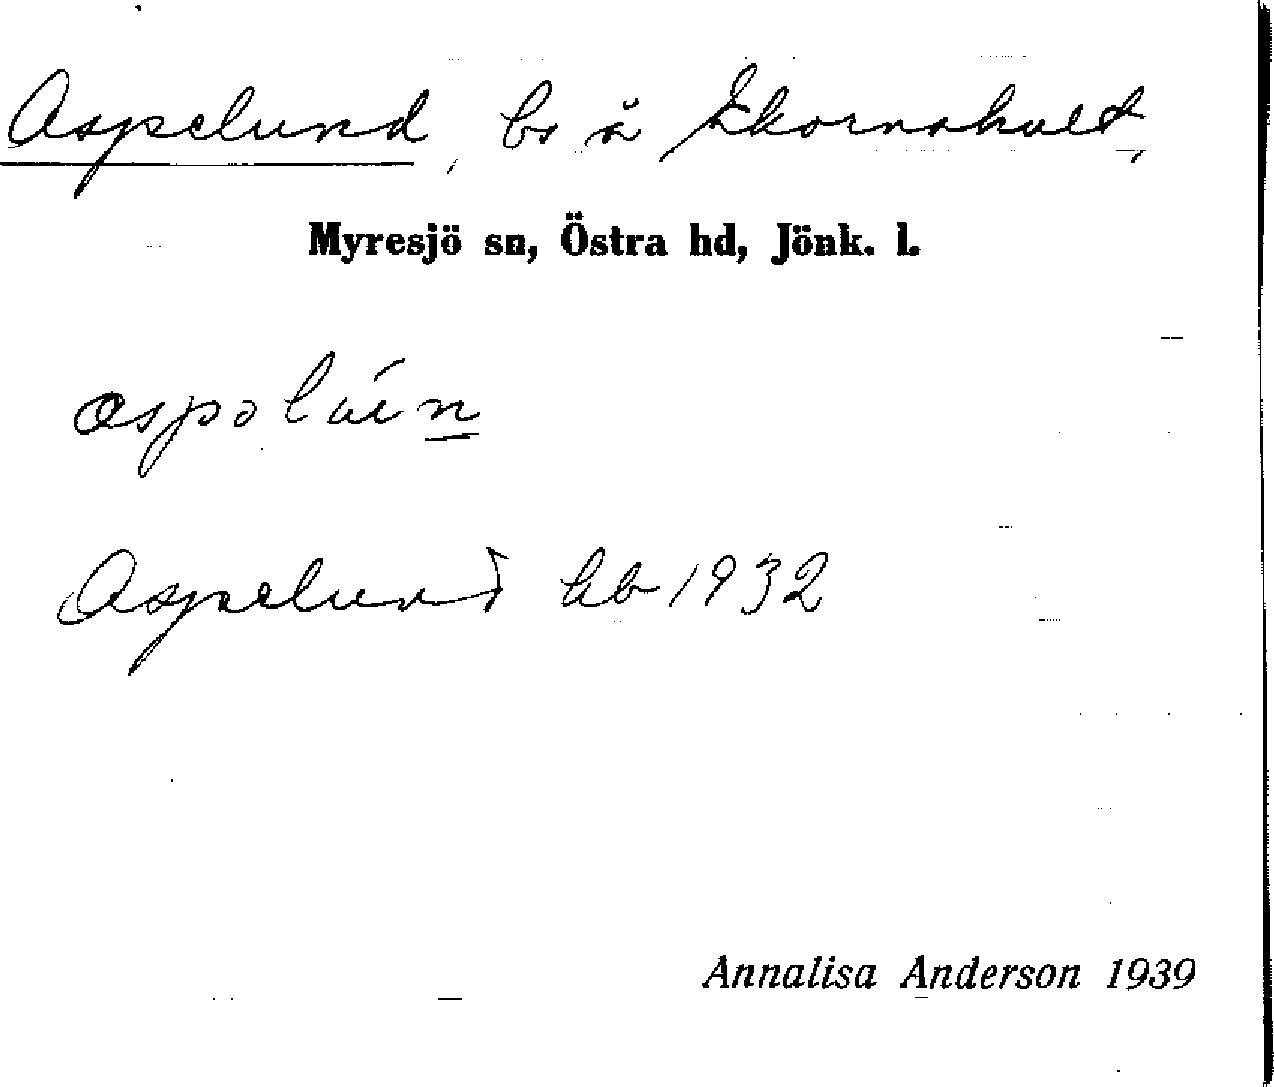 Aspelund, bs å Ekornshult,
Myresjö sn, Östra hd, Jönk. l.
Aspelund hb 1932
Annalisa Anderson 1939